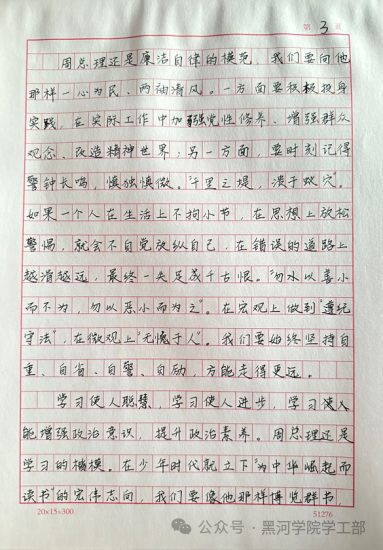 第 3 页
周总理还是廉洁自律的模范，我们要向他
那样一心为民、两袖清风。一方面要积极投身
实践，在实际工作中加强党性修养、增强群众
观念、改造精神世界；另一方面，要时刻记得
警钟长鸣，慎独慎微。"千里之堤，溃于蚁穴"。
如果一个人在生活上不拘小节，在思想上放松
警惕，就会不自觉放纵自己，在错误的道路上
越滑越远，最终一失足成千古恨。"勿以善小
而不为，勿以恶小而为之"。在宏观上做到"遵纪
守法"，在微观上"无愧于人"。我们要始终坚持自
重、自省、自警、自励，方能走得更远。
学习使人聪慧，学习使人进步，学习使人
能增强政治意识，提升政治素养。周总理还是
学习的楷模。在少年时代就立下"为中华崛起而
读书"的宏伟志向，我们要像他那样博览群书，
20×15=300
51276
公众号·黑河学院学工部